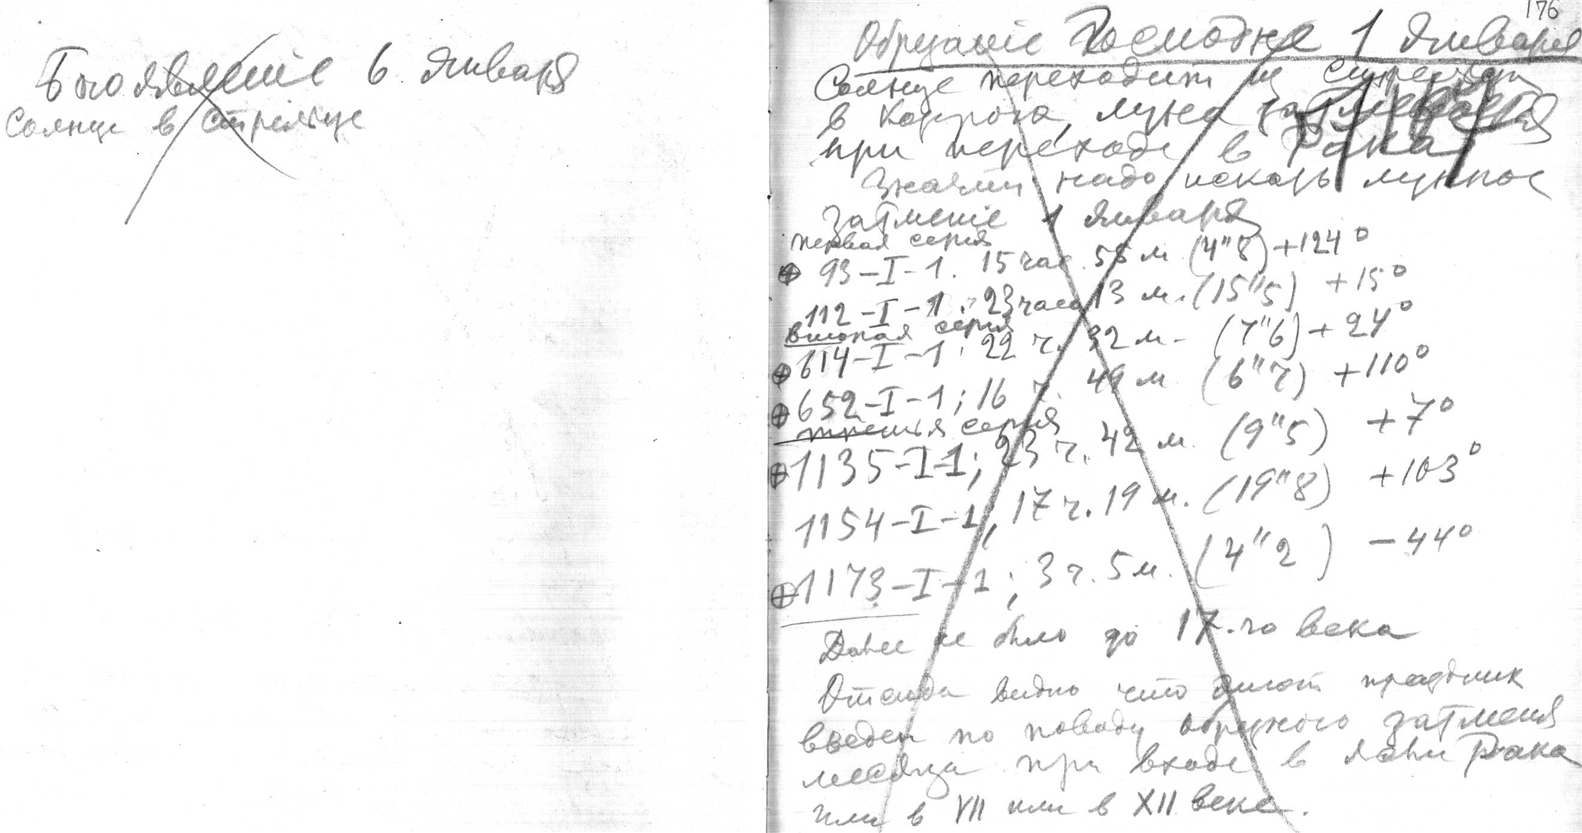 Богоявленіе 6 Января
Солнце в Стрельце
176
Обрезаніе Господне 1 Января
Солнце переходит из Стрельца
в Козерога, луна затмевается
при переходе в Рака
Значит надо искать лунное
затменіе 1 Января
первая серия
⊕ 93-I-1. 15 час. 55 м (4"8) +124°
112-I-1. 23 часа 13 м. (15"5) +15°
вторая серия
⊕ 614-I-1. 22 ч. 32 м - (7"6) +24°
⊕ 652-I-1; 16 ч. 49 м (6"7) +110°
третья серия
⊕ 1135-I-1; 23 ч. 42 м. (9"5) +7°
1154-I-1; 17 ч. 19 м. (19"8) +103°
⊕ 1173-I-1; 3 ч. 5 м. (4"2) -44°
Далее не было до 17-го века
Отсюда видно что этот праздник
введен по поводу затменія
месяца при входе в Рака
или в VII или в XII веке.